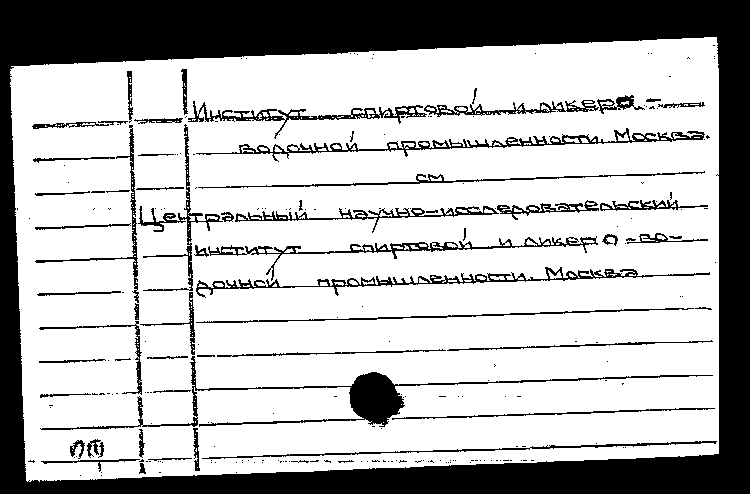 Институт спиртовой и ликеро-
водочной промышленности. Москва.
см
Центральный научно-исследовательский
институт спиртовой и ликеро-во-
дочной промышленности. Москва